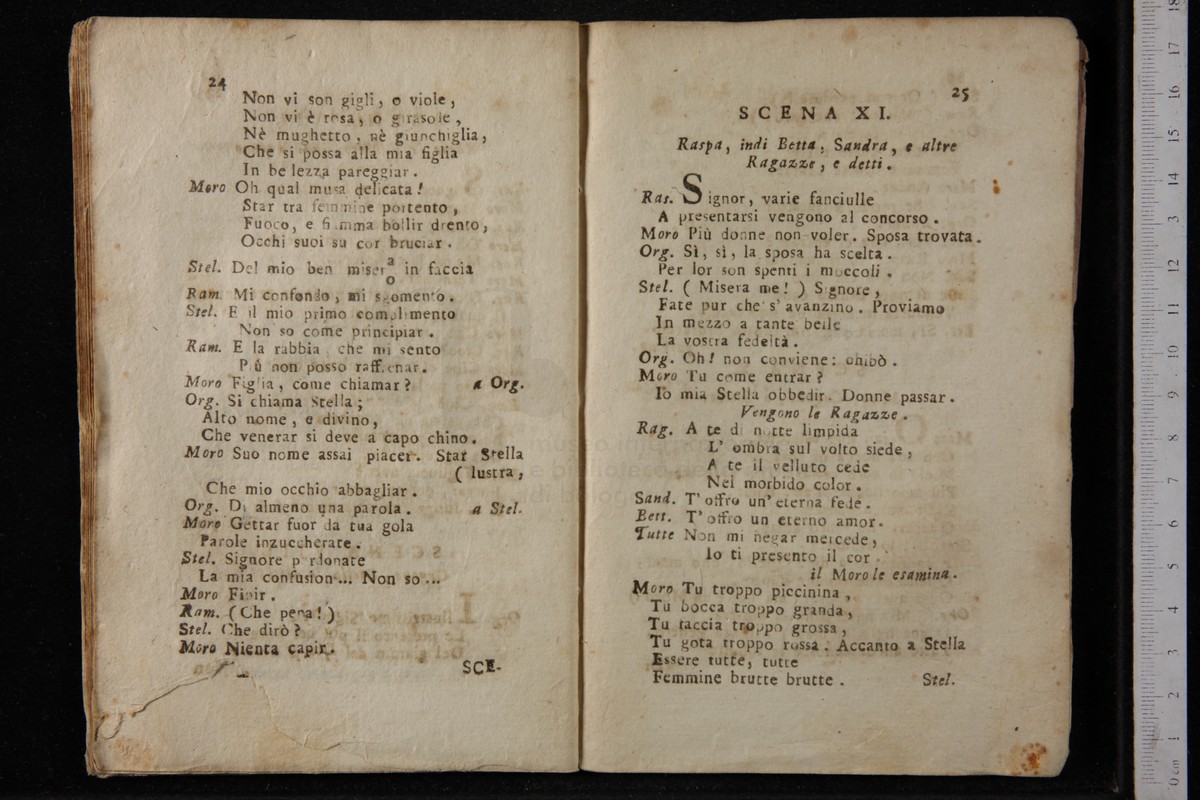 24
Non vi son gigli, o viole,
Non vi è rosa, o girasole,
Nè mughetto, nè giunchiglia,
Che si possa alla mia figlia
In be lezza pareggiar.
Moro Oh qual musa delicata!
Star tra femmine portento,
Fuoco, e fiamma bollir drento,
Occhi suoi su cor bruciar.
Stel. Del mio ben miser a/o in faccia
Ram. Mi confondo, mi sgomento.
Stel. E il mio primo complimento
Non so come principiar.
Ram. E la rabbia che mi sento
Più non posso raffrenar.
Moro Figlia, come chiamar? a Org.
Org. Si chiama Stella;
Alto nome, e divino,
Che venerar si deve a capo chino.
Moro Suo nome assai piacer. Star Stella
( lustra,
Che mio occhio abbagliar.
Org. Di almeno una parola. a Stel.
Moro Gettar fuor da tua gola
Parole inzuccherate.
Stel. Signore p rdonate
La mia confusion... Non so...
Moro Finir.
Ram. (Che pena!)
Stel. Che dirò?
Moro Nienta capir.
SCE-
25
SCENA XI.
Raspa, indi Betta, Sandra, e altre
Ragazze, e detti.
Ras. Signor, varie fanciulle
A presentarsi vengono al concorso.
Moro Più donne non voler. Sposa trovata.
Org. Sì, sì, la sposa ha scelta.
Per lor son spenti i moccoli.
Stel. ( Misera me! ) Signore,
Fate pur che s'avanzino. Proviamo
In mezzo a tante belle
La vostra fedeltà.
Org. Oh! non conviene: ohibò.
Moro Tu come entrar?
Io mia Stella obbedir. Donne passar.
Vengono le Ragazze.
Rag. A te di notte limpida
L' ombra sul volto siede,
A te il velluto cede
Nel morbido color.
Sand. T'offro un' eterna fede.
Bett. T'offro un eterno amor.
Tutte Non mi negar mercede,
Io ti presento il cor.
il Moro le esamina.
Moro Tu troppo piccinina,
Tu bocca troppo granda,
Tu faccia troppo grossa,
Tu gota troppo rossa. Accanto a Stella
Essere tutte, tutte
Femmine brutte brutte.
Stel.